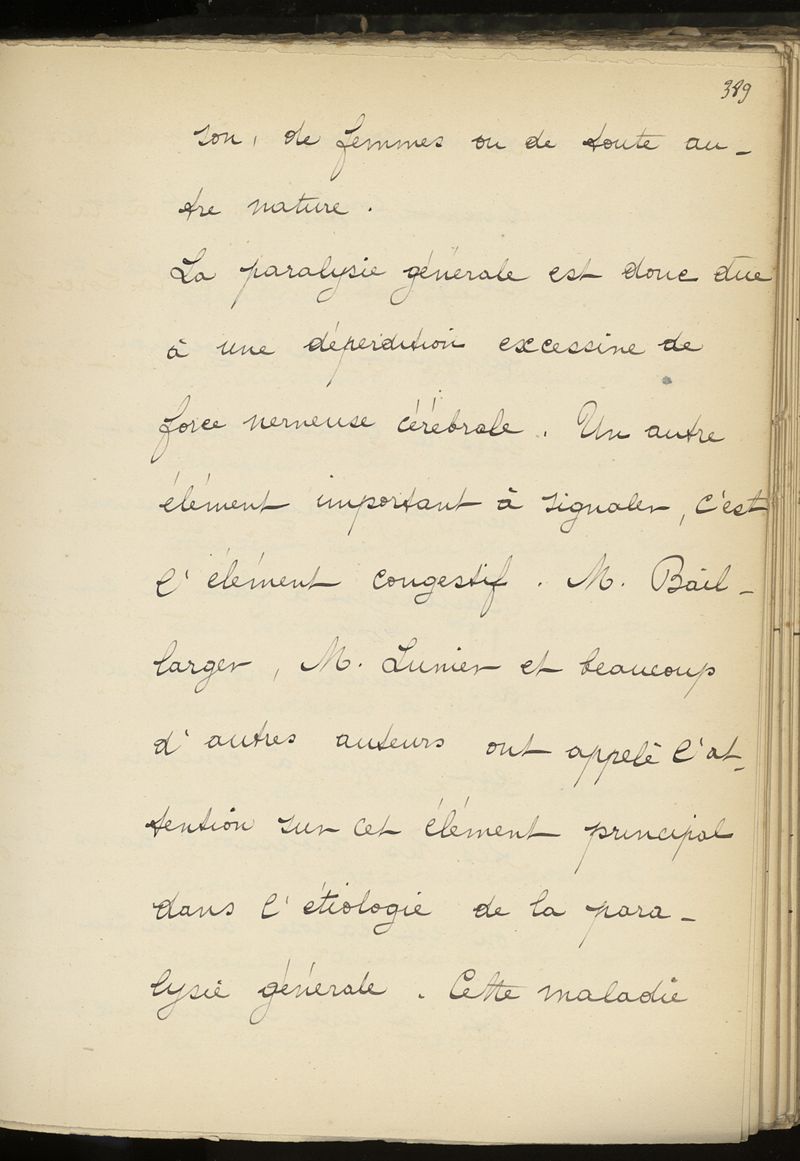 389
son, de femmes ou de toute au-
tre nature.
La paralysie générale est donc due
à une déperdition excessive de
force nerveuse cérébrale. Un autre
élément important à signaler, c'est
l'élément congestif. M. Bail-
larger, M. Lunier et beaucoup
d'autres auteurs ont appelé l'at-
tention sur cet élément principal
dans l'étiologie de la para-
lysie générale. Cette maladie